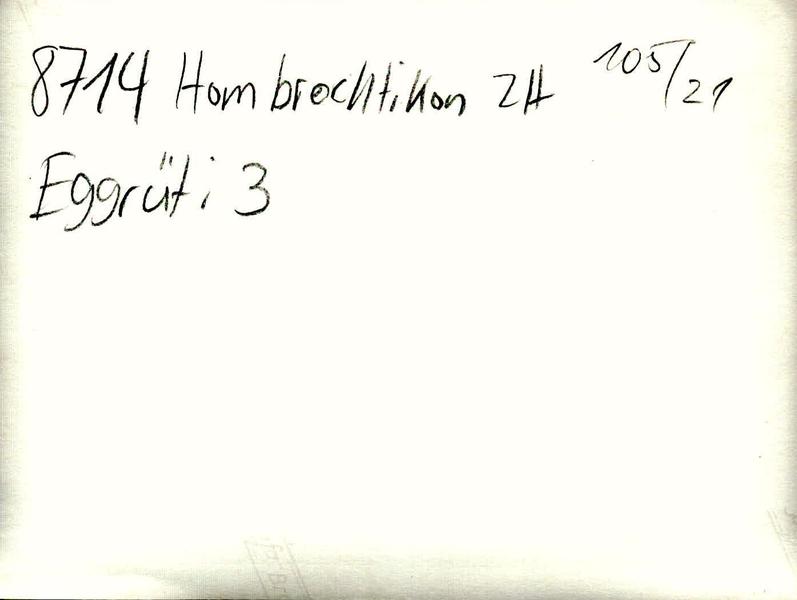 8714 Hombrechtikon ZH 105/21
Eggrüti 3